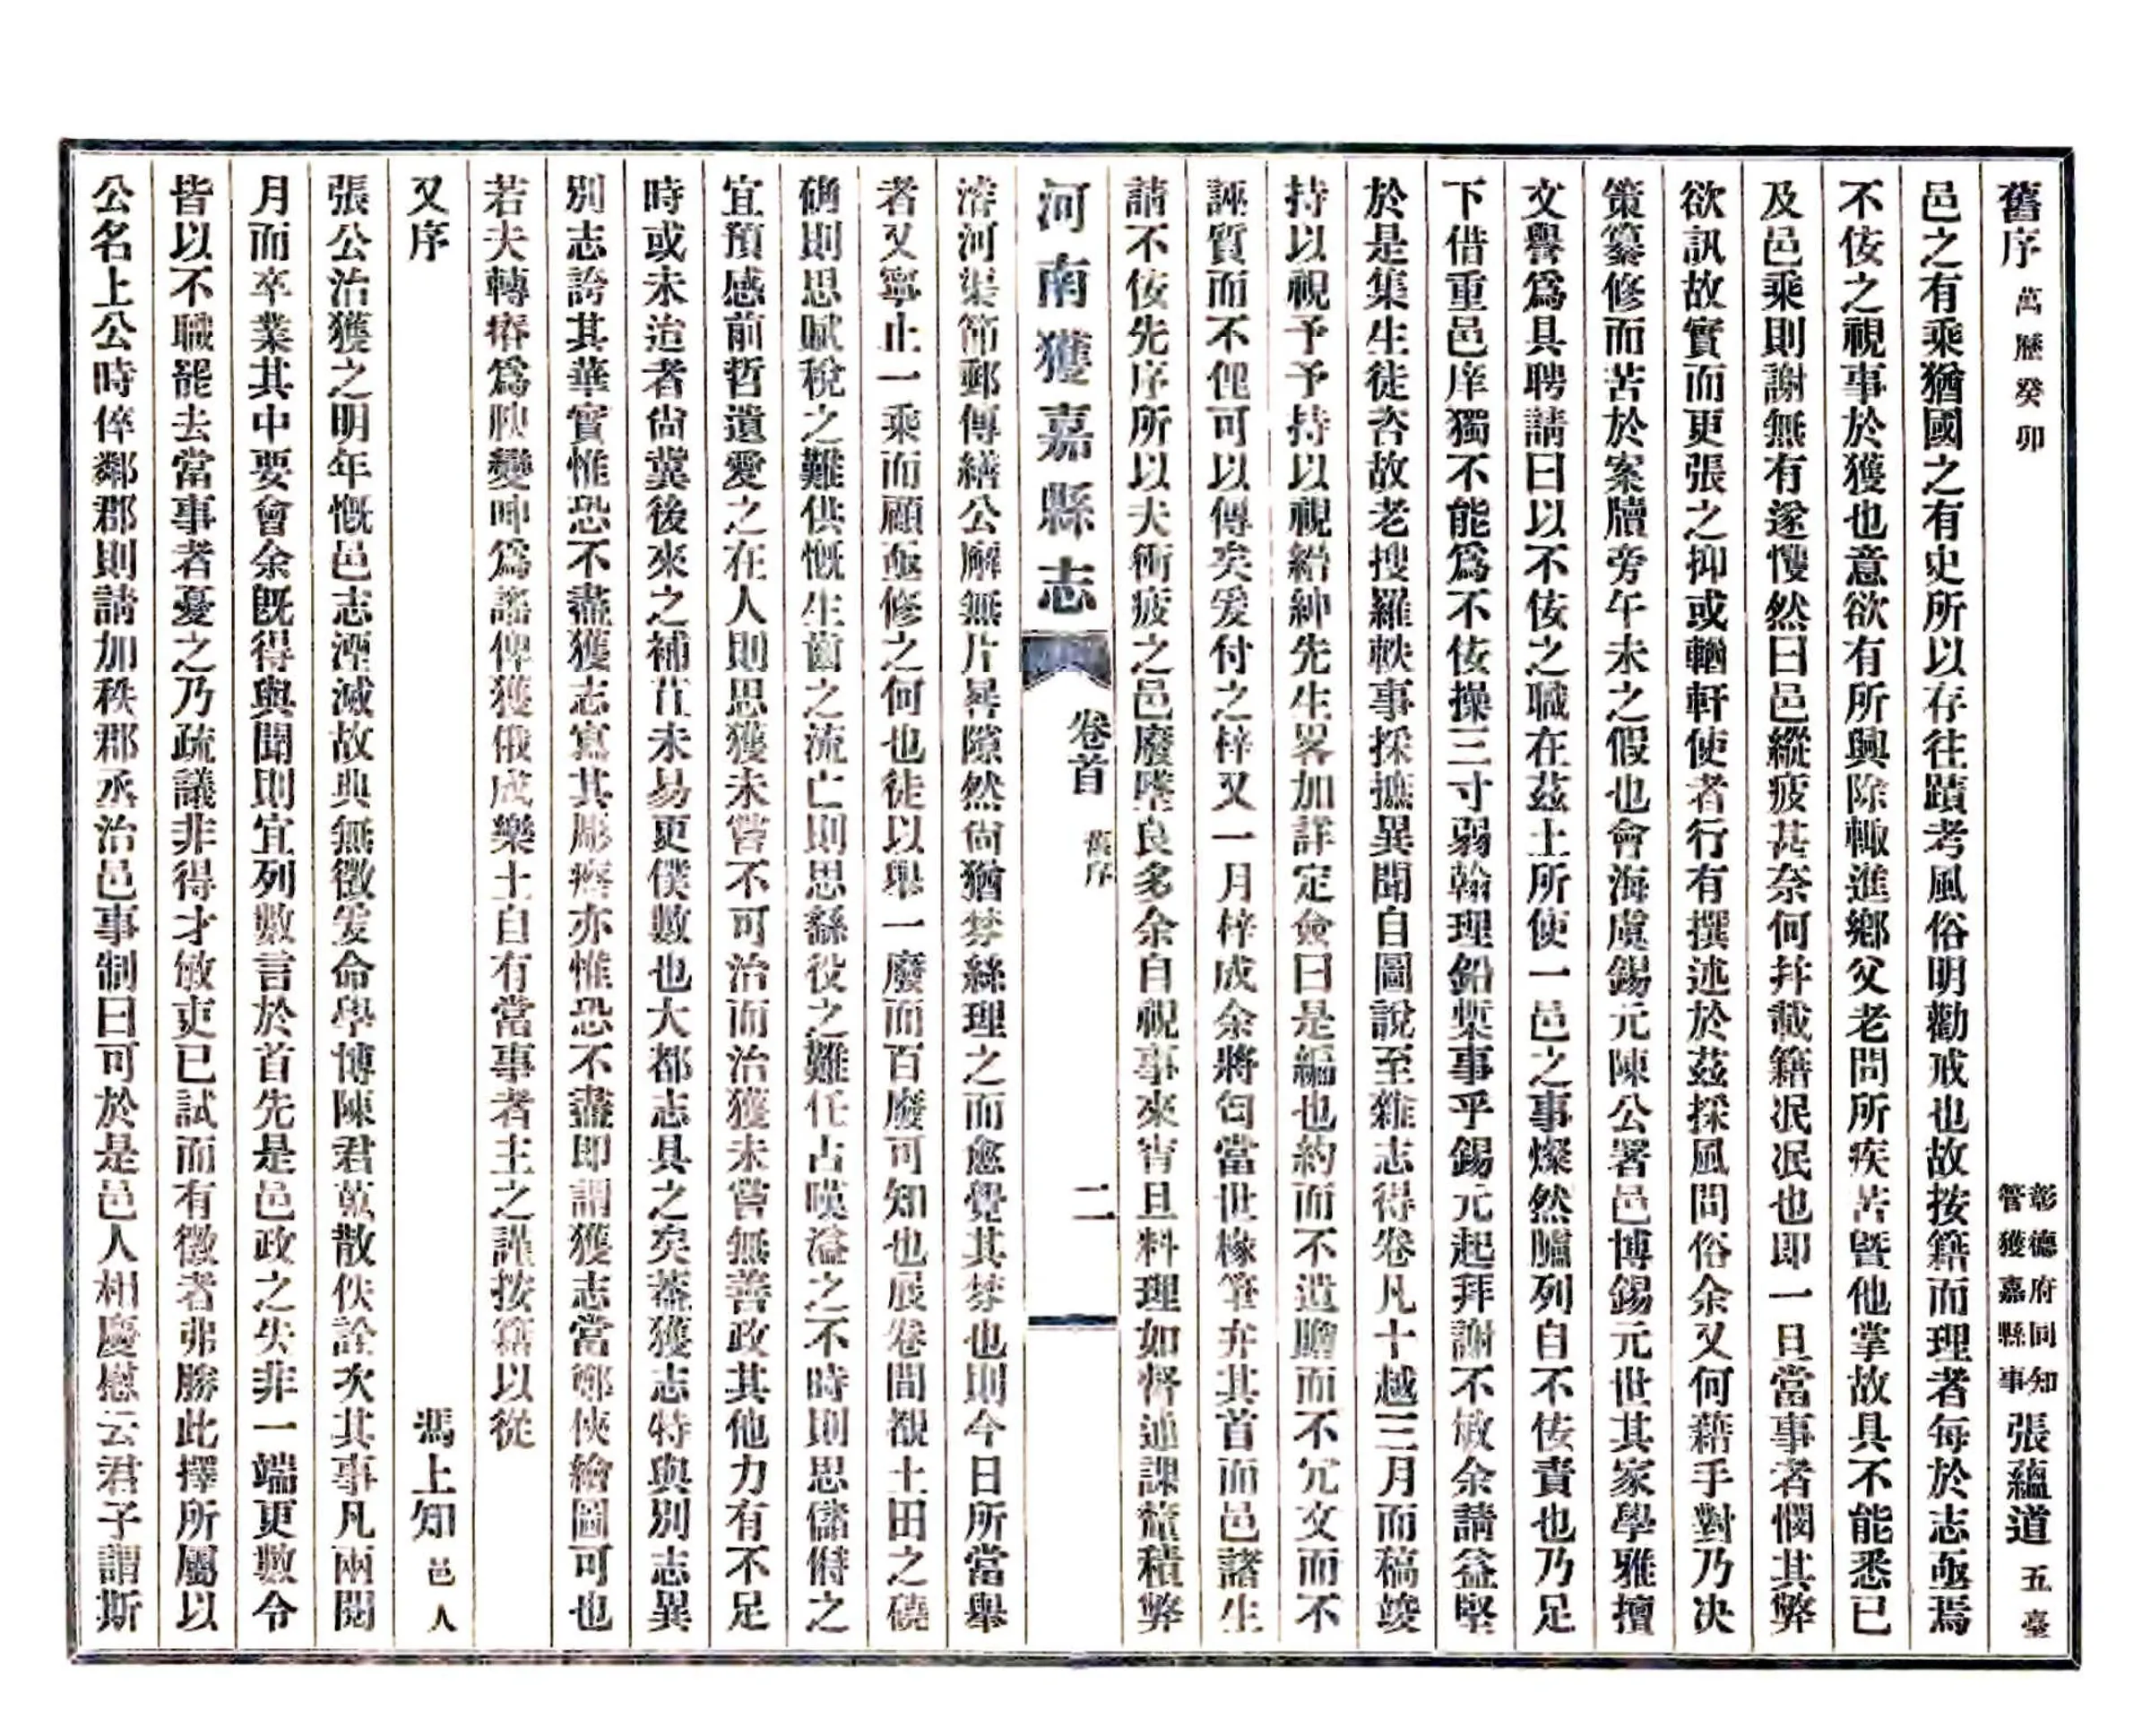 舊序 萬曆癸卯 彰德府同知管獲嘉縣事 張蘊道 五臺
邑之有乘猶國之有史所以存往蹟考風俗明勸戒也故按籍而理者每於志亟焉
不佞之視事於獲也意欲有所興除輙進鄉父老問所疾苦曁他掌故具不能悉已
及邑乘則謝無有遂戄然曰邑縱疲甚奈何幷載籍泯泯也即一旦當事者憫其弊
欲訊故實而更張之抑或輶軒使者行有撰述於茲採風問俗余又何藉手對乃决
策纂修而苦於案牘旁午未之假也會海虞錫元陳公署邑博錫元世其家學雅擅
文譽爲具聘請曰以不佞之職在茲土所使一邑之事燦然臚列自不佞責也乃足
下借重邑庠獨不能爲不佞操三寸弱翰理鉛槧事乎錫元起拜謝不敏余請益堅
於是集生徒咨故老搜羅軼事採摭異聞自圖說至雜志得卷凡十越三月而稿竣
持以視予予持以視縉紳先生畧加詳定僉曰是編也約而不遺贍而不冗文而不
誣質而不俚可以傳矣爰付之梓又一月梓成余將匄當世椽筆弁其首而邑諸生
請不佞先序所以夫衝疲之邑廢墜良多余自視事來宵旦料理如督逋課釐積弊
河南獲嘉縣志 卷首 舊序 二
濬河渠節郵傳繕公廨無片晷隙然尙猶棼絲理之而愈覺其棼也則今日所當舉
者又寧止一乘而顧亟修之何也徒以舉一廢而百廢可知也展卷間覩土田之磽
确則思賦稅之難供慨生齒之流亡則思繇役之難任占暵溢之不時則思儲偫之
宜預感前哲遺愛之在人則思獲未嘗不可治而治獲未嘗無善政其他力有不足
時或未迨者尙冀後來之補苴未易更僕數也大都志具之矣葢獲志特與別志異
別志誇其華實惟恐不盡獲志寫其彫瘵亦惟恐不盡即謂獲志當鄭俠繪圖可也
若夫轉瘠爲腴變呻爲謠俾獲俄成樂土自有當事者主之謹按籍以從
又序 馮上知 邑人
張公治獲之明年慨邑志湮滅故典無徵爰命學博陳君蒐散佚詮次其事凡兩閱
月而卒業其中要會余旣得與聞則宜列數言於首先是邑政之失非一端更數令
皆以不職罷去當事者憂之乃疏議非得才敏吏已試而有徵者弗勝此擇所屬以
公名上公時倅鄰郡則請加秩郡丞治邑事制曰可於是邑人相慶慰云君子謂斯